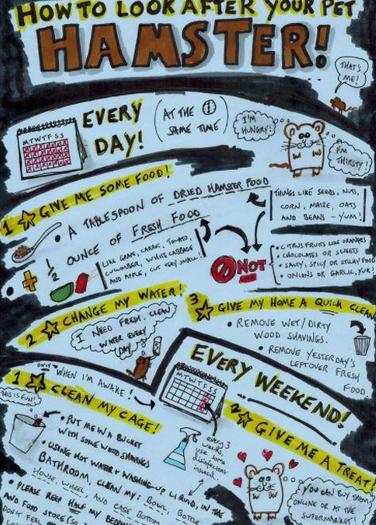 HOW TO LOOK AFTER YOUR PET
HAMSTER!
THAT'S
ME!
MTWTFSS
EVERY
DAY!
(AT THE
SAME TIME)
I'M
HUNGRY!
I'M
THIRSTY!
1 GIVE ME SOME FOOD!
• A TABLESPOON OF DRIED HAMSTER FOOD
THINGS LIKE SEEDS, NUTS,
CORN, MAIZE, OATS
AND BEANS - YUM!
OUNCE OF FRESH FOOD
CUCUMBER, WHITE CABBAGE
AND APPLE, CUT UP SMALL
NOT
• CITRUS FRUITS LIKE ORANGES
• CHOCOLATES OR SWEETS
• SALTY, SPICY OR STICKY FOOD
• ONIONS OR GARLIC, YUK!
2 CHANGE MY WATER!
I NEED FRESH, CLEAN
WATER EVERY
DAY
3 GIVE MY HOME A QUICK CLEAN
• REMOVE WET/DIRTY
WOOD SHAVINGS.
• REMOVE YESTERDAY'S
LEFTOVER FRESH
FOOD
EVERY WEEKEND!
MTWTFSS
WHEN I'M AWAKE!
1 CLEAN MY CAGE!
• PUT ME IN A BUCKET
WITH SOME WOOD SHAVINGS
• USING HOT WATER + WASHING UP LIQUID, IN THE
BATHROOM, CLEAN MY: BOWL, BOTTLE,
HOUSE, WHEEL, AND CAGE BOTTOM
• PLEASE KEEP
AND FOOD STORE
2 GIVE ME A TREAT!
YOU CAN BUY THEM
ONLINE OR AT THE
SUPERMARKET!